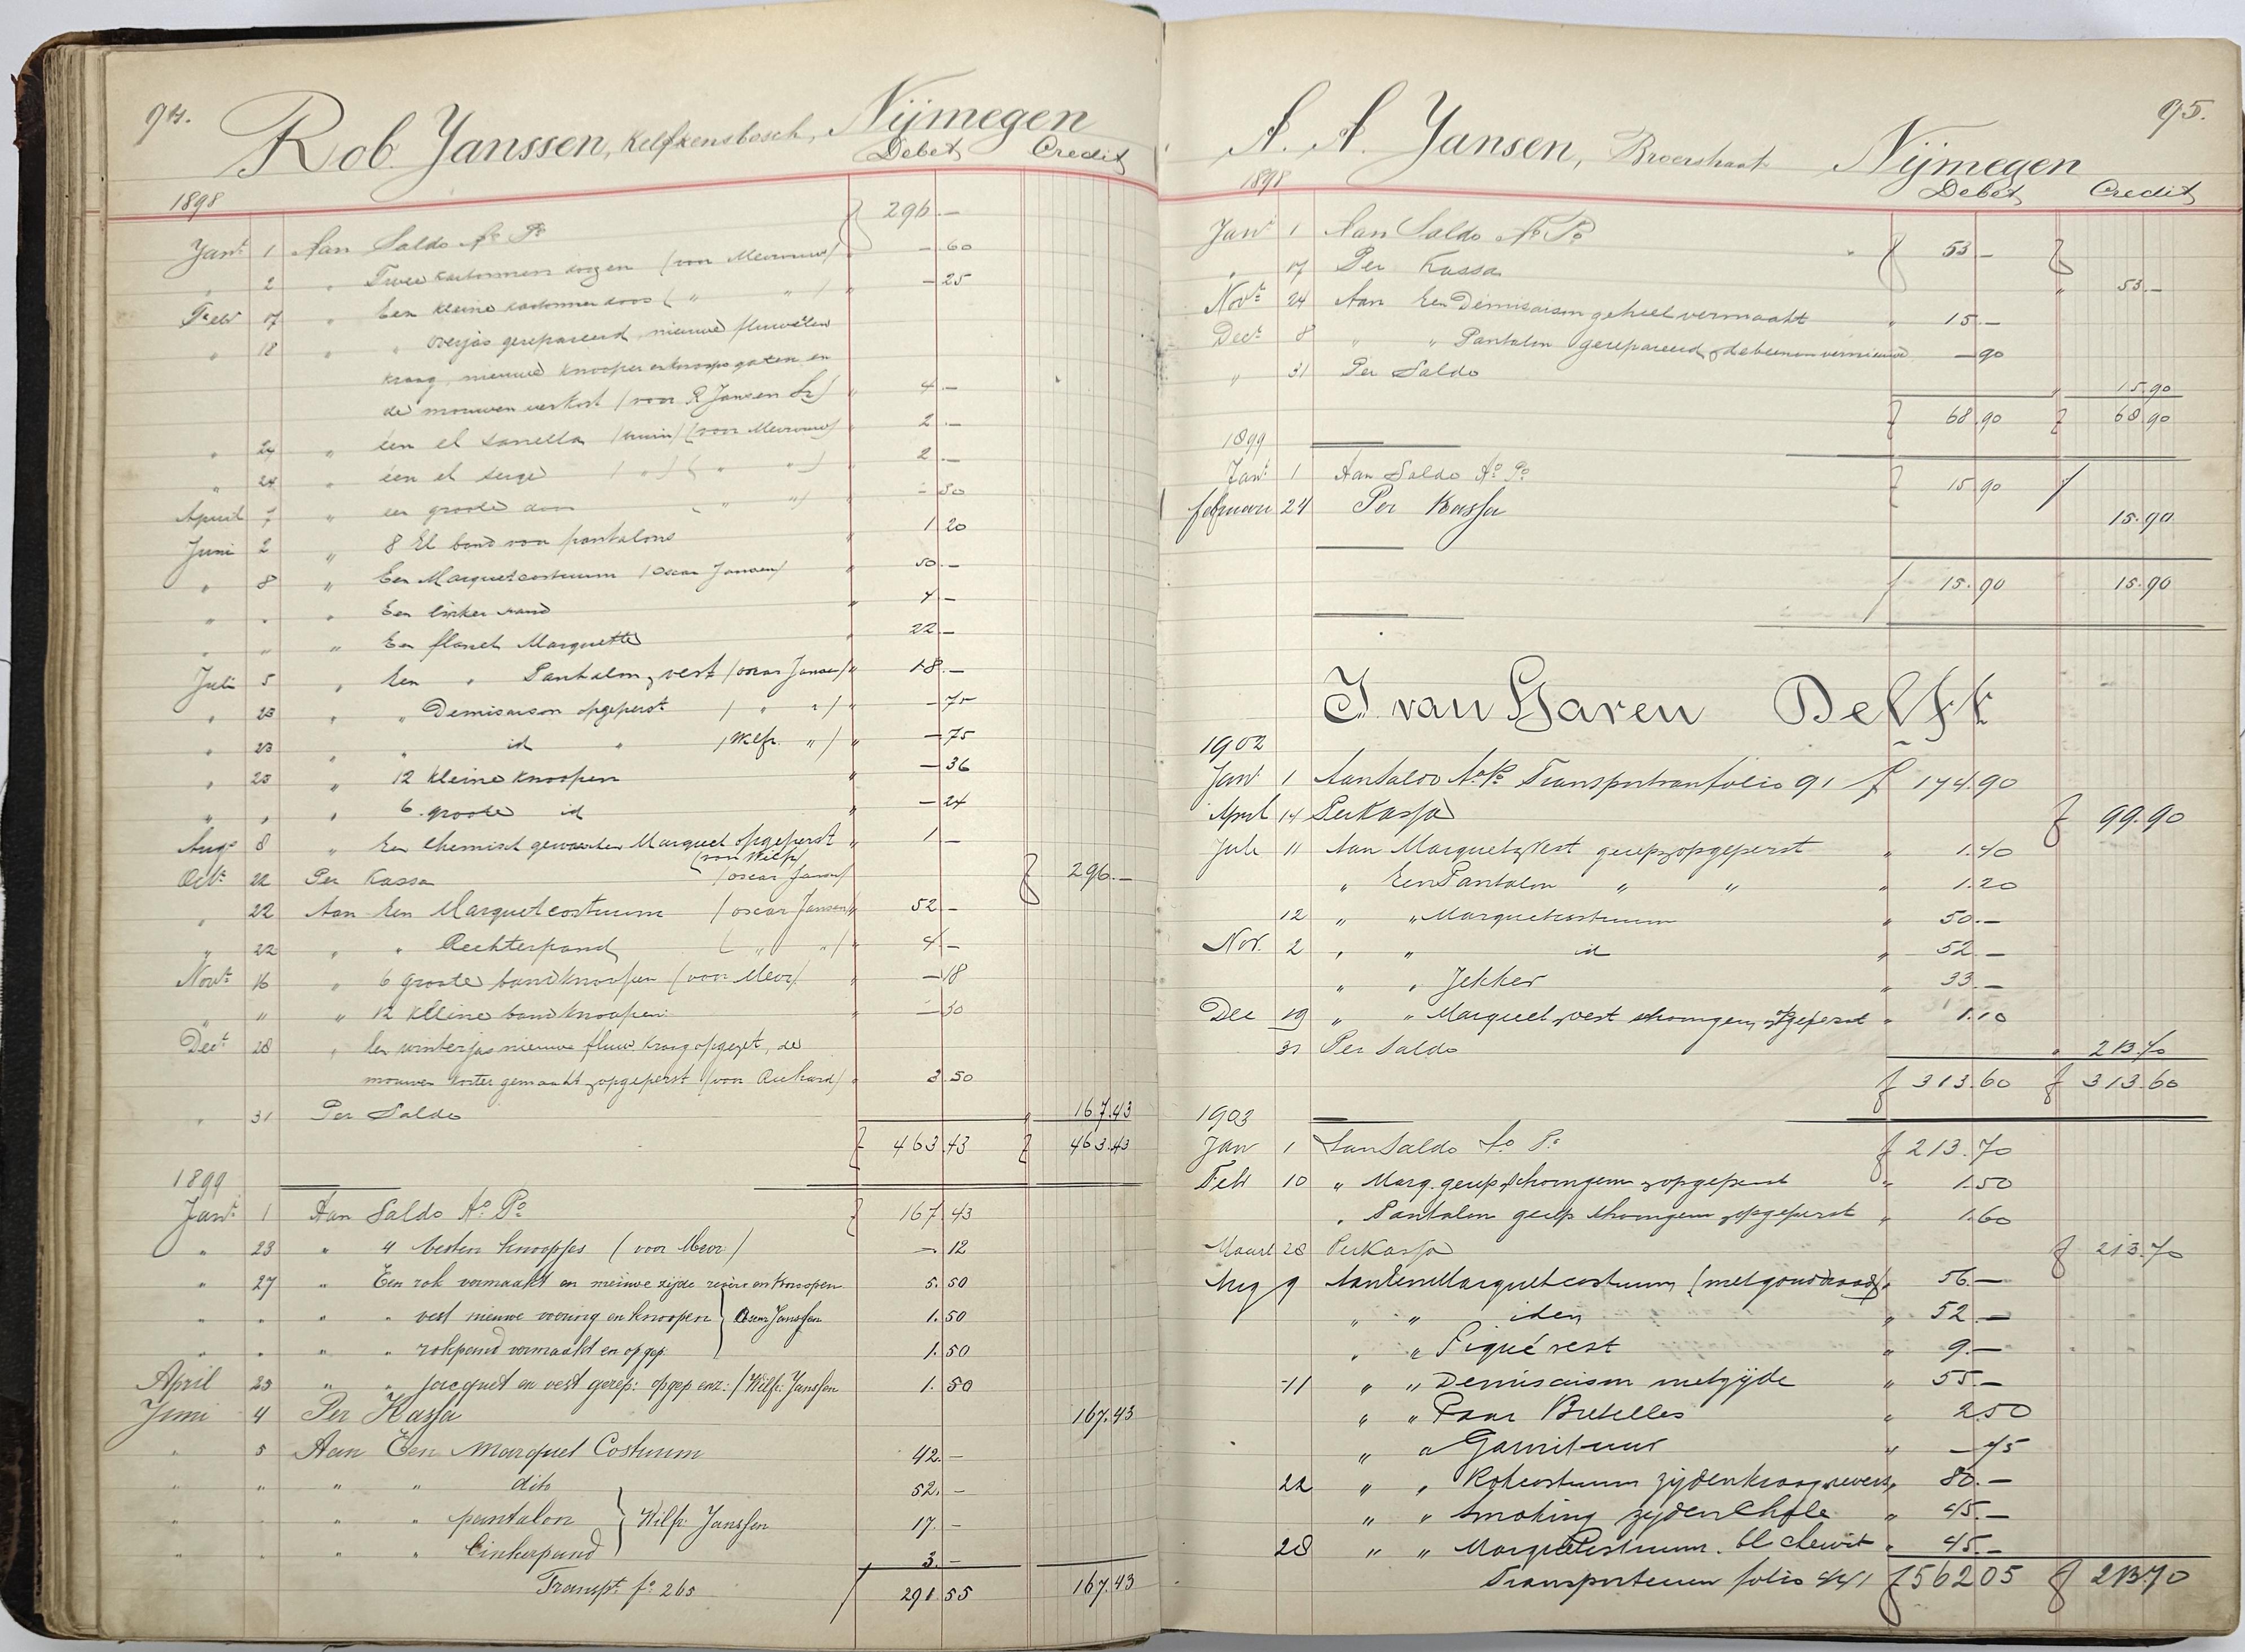 94.
Rob. Janssen, Kelfkensbosch, Nijmegen
Debet Credit
1898
Jan: 1 Aan Saldo Ao Po ƒ 296.—
" 2 " Twee kartonnen doozen (voor Mevrouw) " —.60
Febr 17 " Een kleine kartonnen doos ( " " ) " —.25
" 18 " " overjas gerepareerd, nieuwe fluweelen
kraag, nieuwe knoopen en knoopsgaten en
de mouwen verkort (voor R Jansen Sr) " 4.—
" 24 " één el sanella (bruin) (voor Mevrouw) 2.—
" 24 " één el serge ( " ) ( " " ) " 2.—
April 7 " een groote doos ( " " ) " —.50
Juni 2 " 8 El band voor pantalons " 1.20
" 8 " Een Marquetcostuum (Oscar Jansen) " 50.—
" " " Een linker pand " 4.—
" " " Een flanel Marquette " 22.—
Juli 5 " Een " Pantalon & vest (Oscar Jansen) " 18.—
" 23 " " Demisaison opgeperst ( " " ) " —.75
" 23 " " id " (Wilfr. " ) " —.75
" 23 " 12 kleine knoopen " —.36
" " " 6 groote id " —.24
Aug: 8 " Een chemisch gewasschen Marquet opgeperst " 1.—
(van Wilfr)
Oct: 22 Per Kassa (oscar Jansen) ƒ 296.—
" 22 Aan Een Marquetcostuum (oscar Jansen) " 52.—
" 22 " " Rechterpand ( " " ) " 4.—
Nov: 16 " 6 groote bandknoopen (voor Mevr) " —.18
" " " 12 kleine bandknoopen " —.30
Dec: 28 " Een winterjas nieuwe fluw kraag opgezet, de
mouwen korter gemaakt & opgeperst (van Richard) " 3.50
" 31 Per Saldo " 167.43
ƒ 463.43 ƒ 463.43
1899
Jan: 1 Aan Saldo Ao Po ƒ 167.43
" 23 " 4 beste knoopjes (voor Mevr) —.12
" 27 " Een rok vermaakt en nieuwe zijde revers en knoopen 5.50
" " " " vest nieuwe voering en knoopen } Oscar Janssen 1.50
" " " " rokpand vermaakt en opgep. 1.50
April 23 " " jacquet en vest gerep: opgep enz: (Wilfr: Janssen 1.50
Juni 4 Per Kassa 167.43
" 5 Aan Een Marquet Costuum 42.—
" " " " dito 52.—
" " " " pantalon } Wilfr: Janssen 17.—
" " " " linkerpand 3.—
Transpt. fo 265 291.55 167.43
95.
A. A. Jansen, Broerstraat Nijmegen
Debet Credit
1898
Jan: 1 Aan Saldo Ao Po ƒ 53.—
" 17 Per Kassa " 53.—
Nov: 24 Aan Een Demisaison geheel vermaakt " 15.—
Dec: 8 " " Pantalon gerepareerd & de beenen vernieuwd —.90
" 31 Per Saldo " 15.90
ƒ 68.90 ƒ 68.90
1899
Jan: 1 Aan Saldo Ao Po ƒ 15.90
februari 24 Per Kassa 15.90
ƒ 15.90 15.90
J. van Haren Delft
1902
Jan 1 Aan Saldo Ao Po Transport van folio 91 ƒ 174.90
April 14 Per Kassa ƒ 99.90
Juli 11 Aan Marquet & Vest gerep & opgeperst " 1.40
" Een Pantalon " " " 1.20
12 " " Marquetcostuum " 50.—
Nov. 2 " " id " 52.—
" " Jekker " 33.—
Dec 19 " " Marquet & vest schoongem & opgeperst " 1.10
31 Per Saldo " 213.70
ƒ 313.60 ƒ 313.60
1903
Jan 1 Aan Saldo Ao Po ƒ 213.70
Febr 10 " Marq. gerep, schoongem & opgeperst " 1.50
" Pantalon gerep schoongem & opgeperst " 1.60
Maart 28 Per Kassa ƒ 213.70
Aug 9 Aan Een Marquetcostuum (met goud draad) " 56.—
" " idem " 52.—
" " Piqué vest " 9.—
11 " " Demisaison met zijde " 55.—
" " Paar Bretelles " 2.50
" " Garnituur " —.75
22 " " Rokcostuum zijden kraag & revers " 80.—
" " Smoking zijden Chále " 45.—
28 " " Marquetcostuum. bl cheviot " 45.—
Transporteeren folio 441 ƒ 562.05 ƒ 213.70